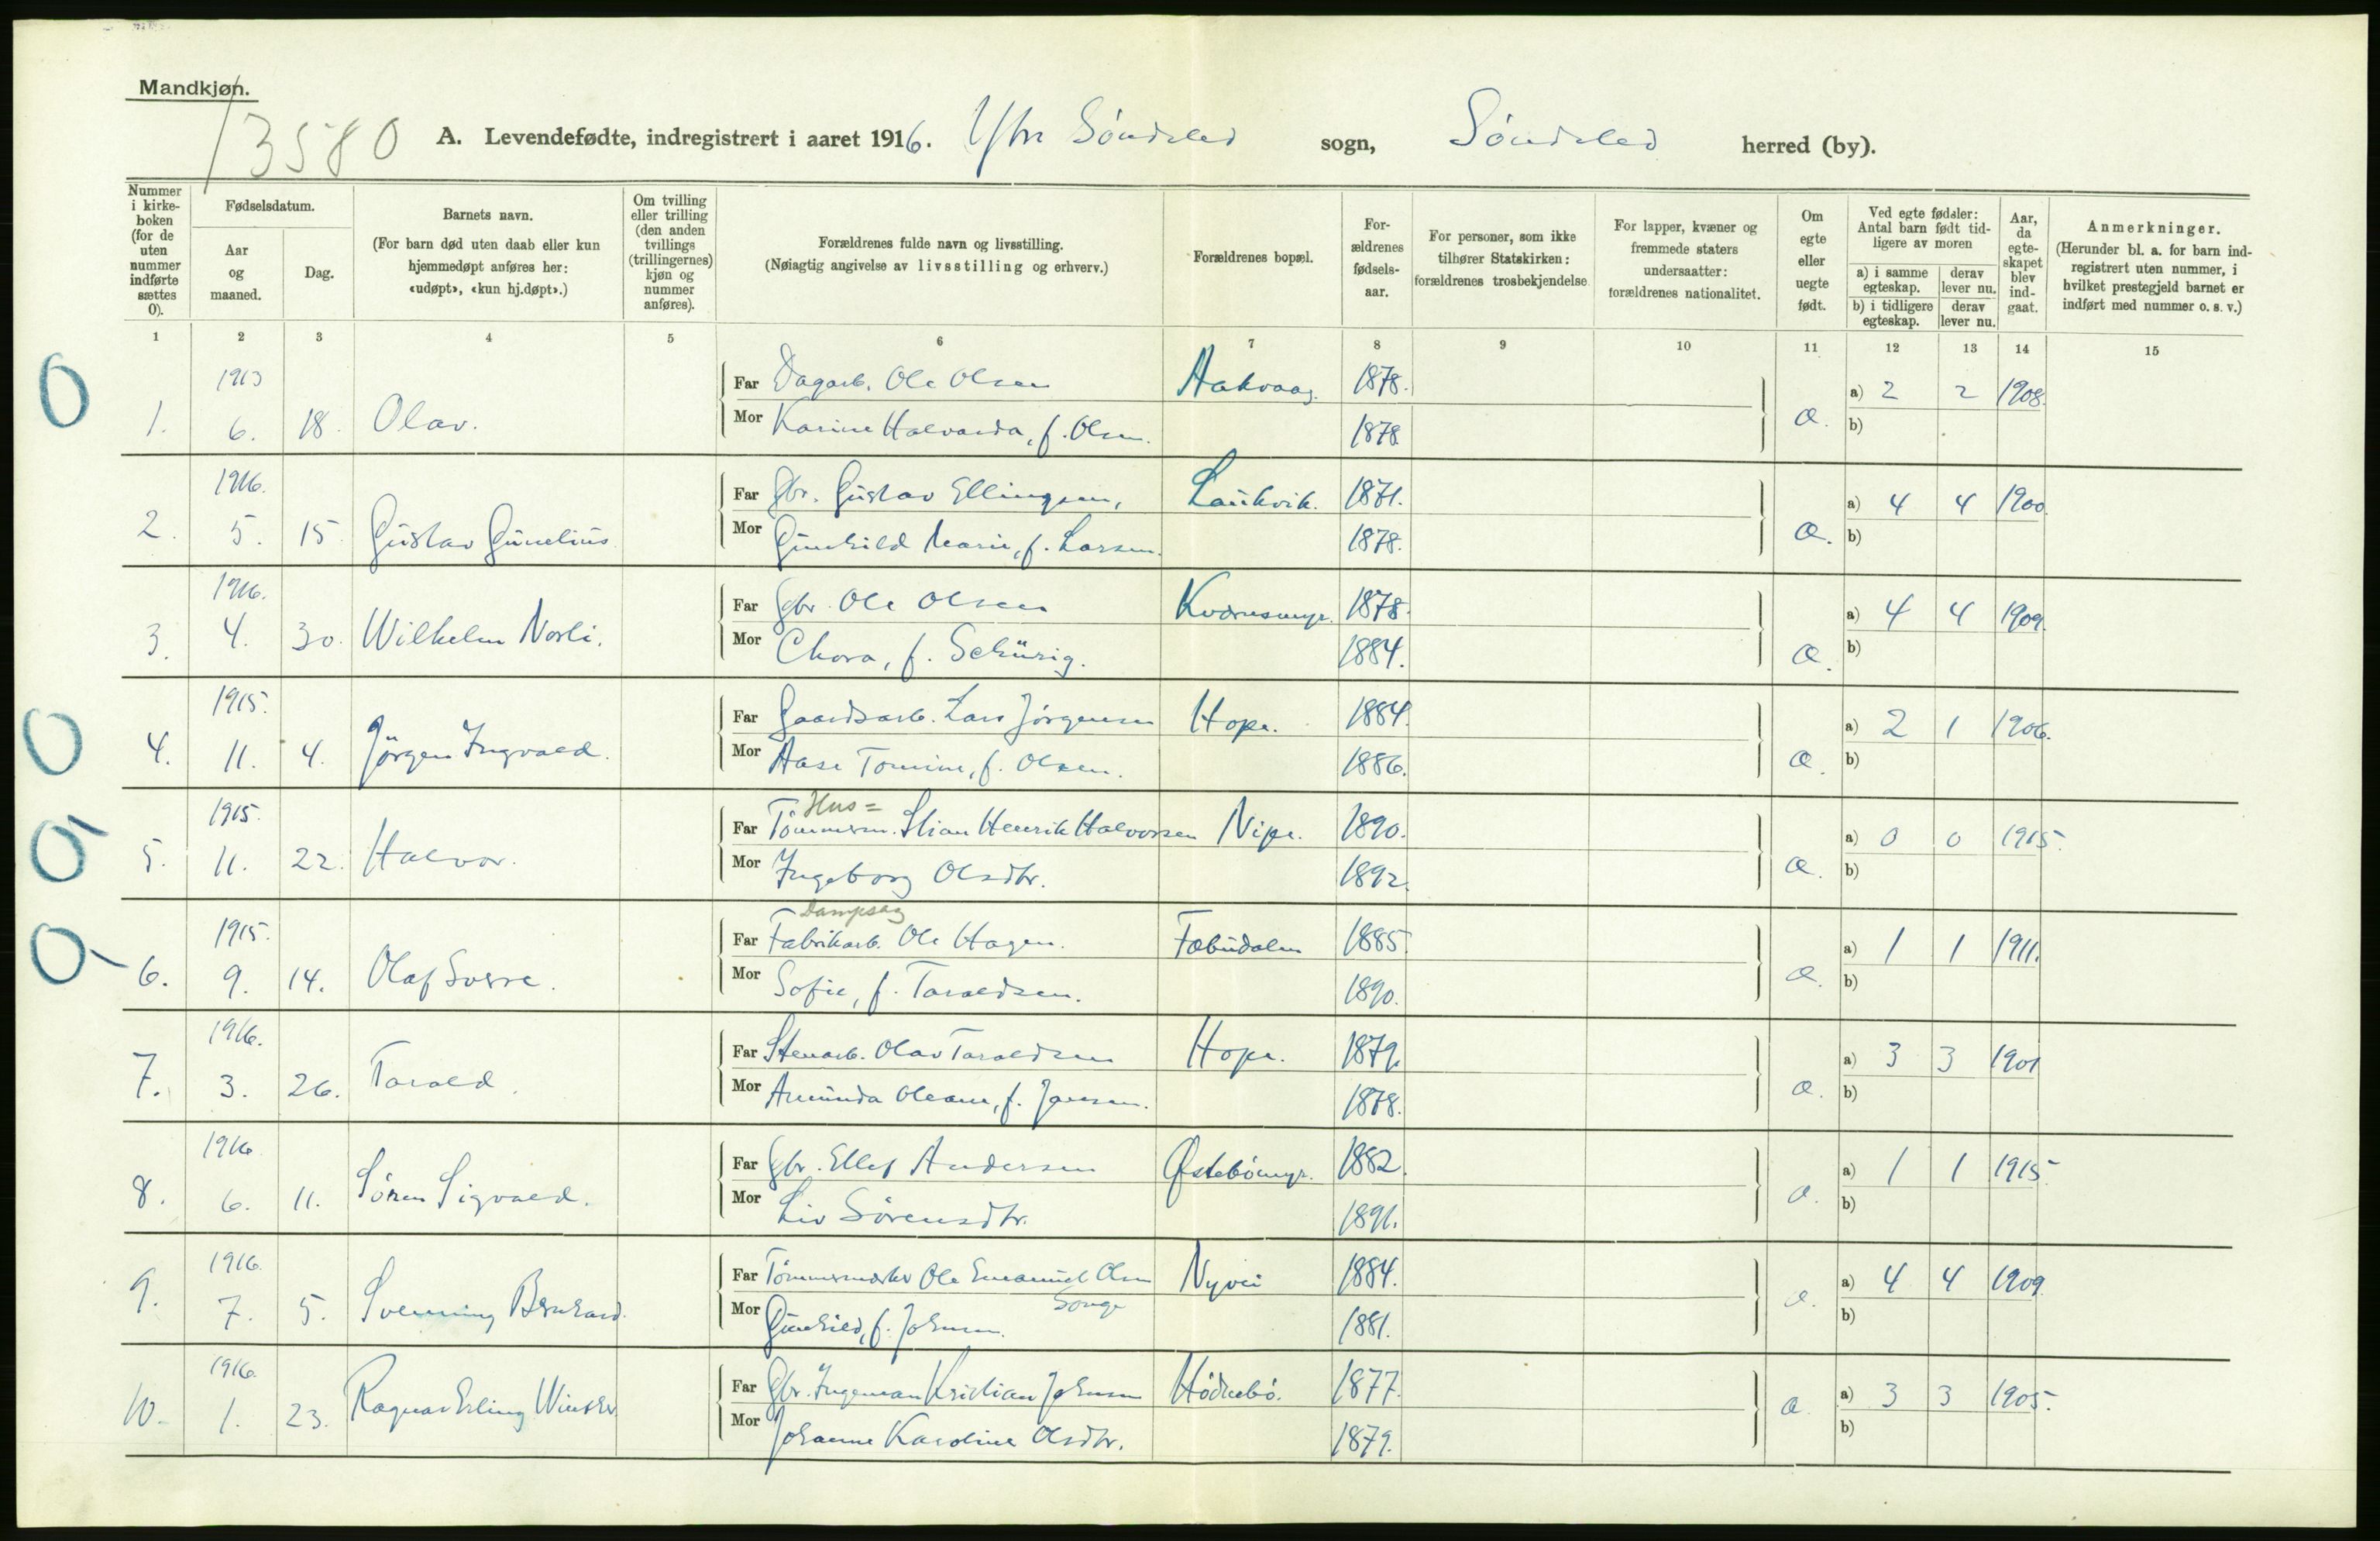 Mandkjøn.
3580
A. Levendefødte, indregistrert i aaret 1916. Ytre Söndeled sogn, Söndeled herred (by).
Nummer i kirkeboken (for de uten nummer indførte sættes 0).
Fødselsdatum.
Aar og maaned.
Dag.
Barnets navn.
(For barn død uten daab eller kun hjemmedøpt anføres her: «udøpt», «kun hj.døpt».)
Om tvilling eller trilling (den anden tvillings (trillingernes) kjøn og nummer anføres).
Forældrenes fulde navn og livsstilling.
(Nøiagtig angivelse av livsstilling og erhverv.)
Forældrenes bopæl.
Forældrenes fødselsaar.
For personer, som ikke tilhører Statskirken: forældrenes trosbekjendelse
For lapper, kvæner og fremmede staters undersaatter: forældrenes nationalitet.
Om egte eller uegte født.
Ved egte fødsler: Antal barn født tidligere av moren
a) i samme egteskap. derav lever nu.
b) i tidligere egteskap. derav lever nu.
Aar, da egteskapet blev indgaat.
Anmerkninger.
(Herunder bl. a. for barn indregistrert uten nummer, i hvilket prestegjeld barnet er indført med nummer o. s. v.)
1 2 3 4 5 6 7 8 9 10 11 12 13 14 15
0
1913 Far Dagarb. Ole Olsen Aakvaag. 1878. a) 2 2 1908.
1. 6. 18. Olav. Mor Karine Halvarda, f. Olsen. 1878. b)
1916. Far Gbr. Gustav Ellingsen, Laukvik. 1871. a) 4 4 1900.
2. 5. 15. Gustav Gunelius Mor Gunhild Marie, f. Larsen. 1878. b)
1916. Far Gbr. Ole Olsen 1878. a) 4 4 1909.
3. 4. 30. Wilhelm Norli. Mor Chora, f. Schürig. 1884. b)
0
1915. Far Gaardsarb. Lars Jörgensen Hope. 1884. a) 2 1 1906.
4. 11. 4. Jörgen Ingvald. Mor Aase Tomine, f. Olsen. 1886. b)
0
Hus=
1915. Far Tömmerm. Stian Henrik Halvorsen Nipe. 1890. a) 0 0 1915.
5. 11. 22. Halvor. Mor Ingeborg Olsdtr. 1892. b)
0
Dampsag
1915. Far Fabrikarb. Ole Hagen. 1885. a) 1 1 1911.
6. 9. 14. Olaf Sverre. Mor Sofie, f. Taraldsen. 1890. b)
1916. Far Stenarb. Olav Taraldsen Hope. 1879. a) 3 3 1901
7. 3. 26. Tarald. Mor Amunda Oleane, f. Jansen. 1878. b)
1916 Far Gbr. Ellef Andersen Östebömyr. 1882. a) 1 1 1915.
8. 6. 11. Sören Sigvald. Mor Liv Sörensdtr. 1891. b)
1916. Far Tömmermerker Ole Emanuel Olsen Nyvei 1884. a) 4 4 1909.
Songe
9. 7. 5. Svenning Bernhard. Mor Gunhild, f. Johnsen. 1881. b)
1916. Far Gbr. Ingeman Kristian Johnsen Hödnebö. 1877. a) 3 3 1905.
10. 1. 23. Ragnar Erling Mor Johanne Karoline Olsdtr. 1879. b)